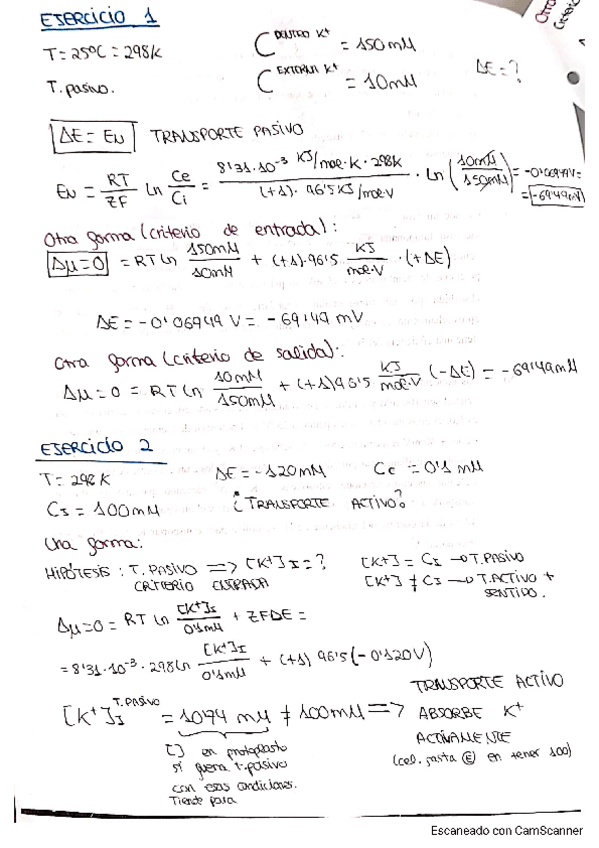 EJERCICIO 1
Otra
T = 25ºC = 298K
C DENTRO K+ = 150mM
T. pasivo.
C EXTERIOR K+ = 10mM
ΔE = ?
ΔE = EN TRANSPORTE PASIVO
EN = RT/ZF ln Ce/Ci = 8'31·10^-3 KJ/mol·K · 298K / (+1) · 96'5 KJ/mol·V · ln (10mM/150mM) = -0'06949V =
= -69'49mV
Otra forma (criterio de entrada):
Δμ=0 = RT ln 150mM/10mM + (+1)·96'5 KJ/mol·V · (+ΔE)
ΔE = -0'06949 V = -69'49 mV
Otra forma (criterio de salida):
Δμ=0 = RT ln 10mM/150mM + (+1)96'5 KJ/mol·V (-ΔE) = -69'49mM
EJERCICIO 2
T = 298K ΔE = -120mM Ce = 0'1 mM
CI = 100mM ¿TRANSPORTE ACTIVO?
Una forma:
HIPÓTESIS: T. PASIVO => [K+]I = ? [K+] = CI → T. PASIVO
CRITERIO ENTRADA [K+] ≠ CI → T. ACTIVO +
SENTIDO.
Δμ=0 = RT ln [K+]I/0'1mM + ZFDE =
= 8'31·10^-3 · 298 ln [K+]I/0'1mM + (+1) 96'5 (-0'120V)
[K+]I T. PASIVO = 1074 mM ≠ 100mM => TRANSPORTE ACTIVO
ABSORBE K+
ACTIVAMENTE
(cel. gasta Ⓔ en tener 100)
[] en protoplasto
si fuera t. pasivo
con esas condiciones.
Tiende para
Escaneado con CamScanner